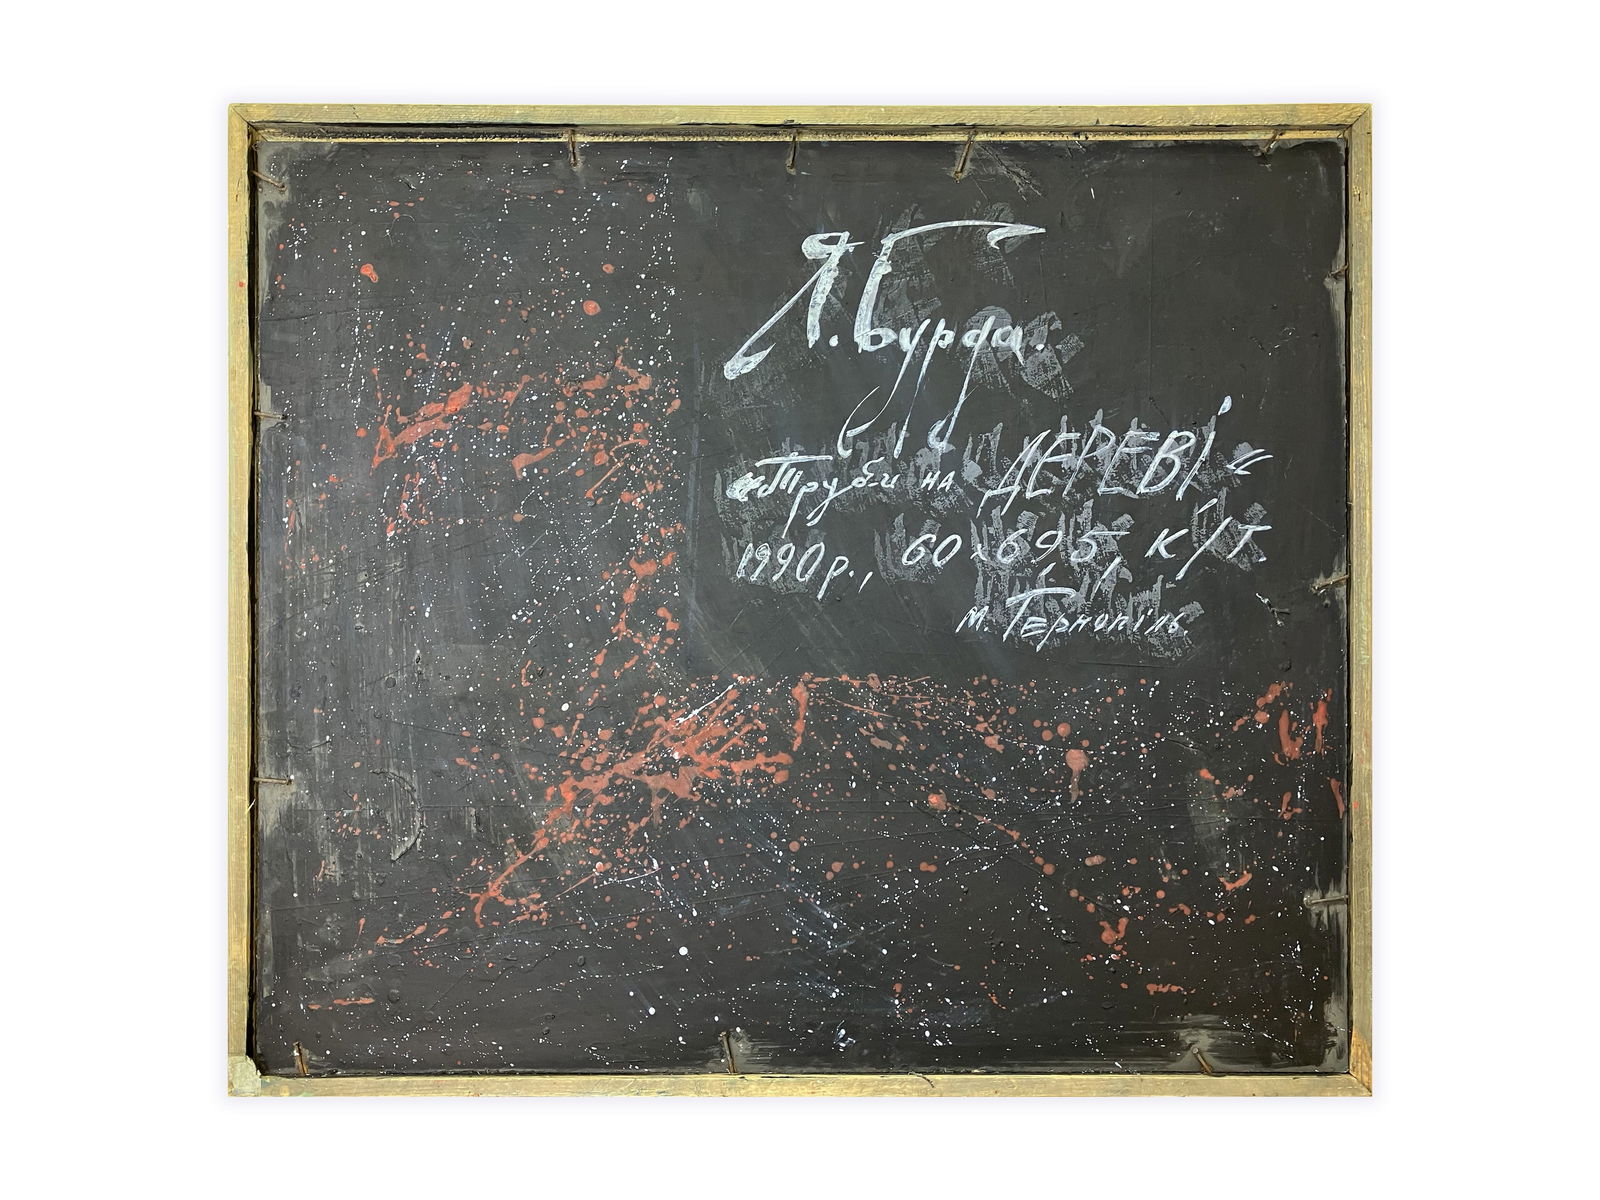 Я. Бурда.
"Труби на ДЕРЕВІ"
1990р., 60×69,5, к/т.
м. Тернопіль